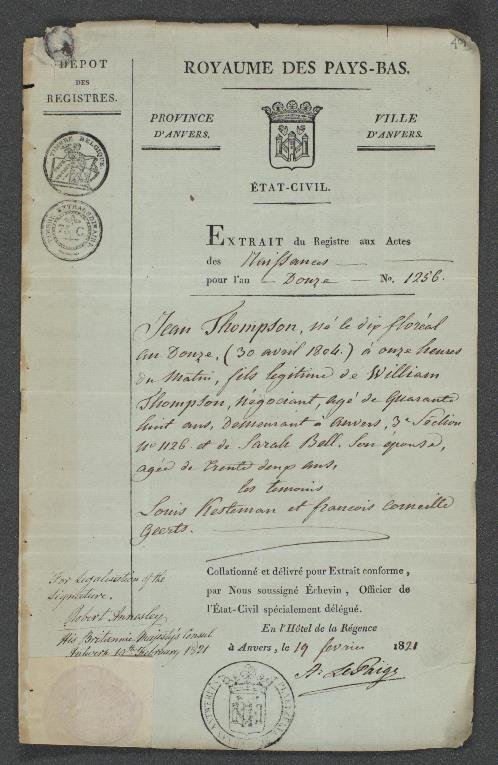 49
DEPOT
DES
REGISTRES.
ROYAUME DES PAYS-BAS.
PROVINCE
D'ANVERS.
VILLE
D'ANVERS.
TIMBRE BELGIQUE
TIMBRE EXTRAORDINAIRE
C
ÉTAT-CIVIL.
EXTRAIT du Registre aux Actes
des Naissances
pour l'an Douze No. 1256.
Jean Thompson, né le dix floréal
an Douze, (30 avril 1804.) à onze heures
du matin, fils legitime de William
Thompson, négociant, agé de quarante
huit ans, demeurant à Anvers, 3e Section
No 1126 et de Sarah Bell. Son épouse,
agée de trente deux ans,
les temoins
Louis Kesteman et francois Corneille
Geerts.
For Legalisation of the
Signature.
Robert Annesley
His Britannic Majesty's Consul
Antwerp February 1821
Collationné et délivré pour Extrait conforme,
par Nous soussigné Échevin, Officier de
l'État-Civil spécialement délégué.
En l'Hôtel de la Régence
à Anvers, le 19 fevrier 1821
A. LePaige